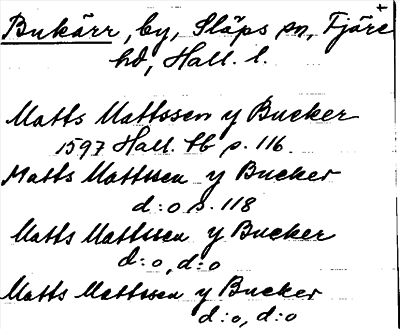 +
Bukärr, by, Släps sn, Fjäre
hd, Hall. l.
Matts Mattssen y Bucker
1597 Hall. lb s. 116
Matts Mattssen y Bucker
d:o s. 118
Matts Mattssen y Bucker
d:o, d:o
Matts Mattssen y Bucker
d:o, d:o